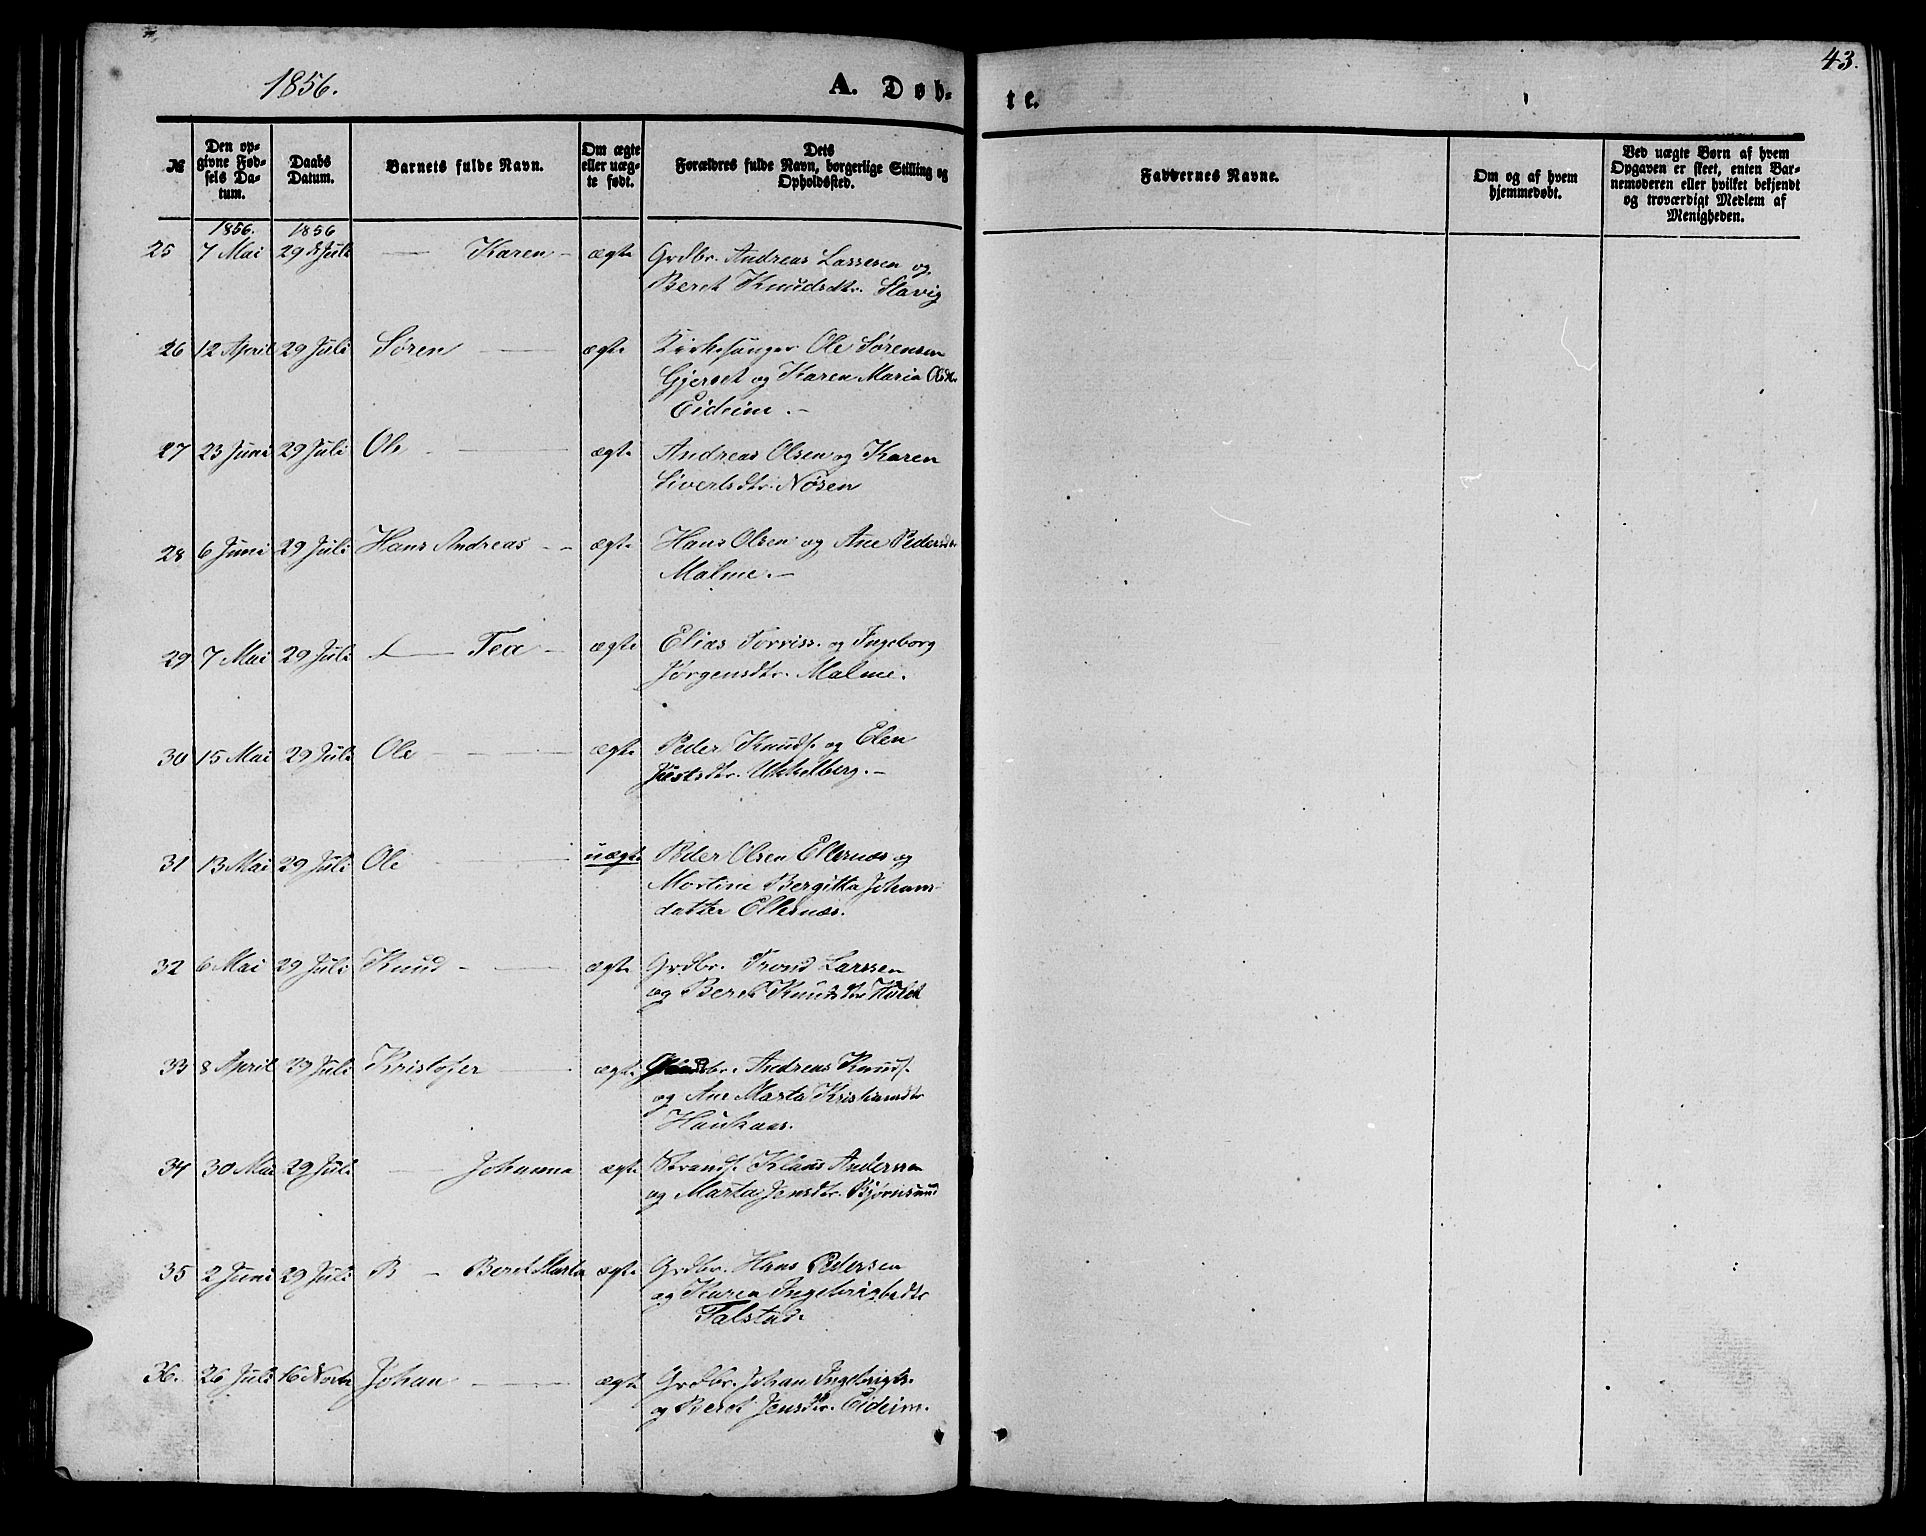 1856.
A. Døb-
te.
43.
№
Den op-
givne Fød-
sels Da-
tum.
Daabs
Datum.
Barnets fulde Navn.
Om ægte
eller uæg-
te født.
Dets
Forældres fulde Navn, borgerlige Stilling og
Opholdssted.
Faddernes Navne.
Om og af hvem
hjemmedøbt.
Ved uægte Børn af hvem
Opgaven er skeet, enten Bar-
nemoderen eller hvilket bekjendt
og troværdigt Medlem af
Menigheden.
1856. 1856
25 7 Mai 29 Juli — Karen - ægte Grdbr. Andreas Lassesen og
Beret Knudsdtr. Slavig
26 12 April 29 Juli Søren — ægte Kirkesanger Ole Sørensen
Gjerset og Karen Maria Olsdtr
Eideim. -
27 23 Juni 29 Juli Ole - — ægte Andreas Olsen og Karen
Sivertsdtr. Nøsen
28 6 Juni 29 Juli Hans Andreas - - ægte Hans Olsen og Ane Pedersdtr
Malme. -
29 7 Mai 29 Juli — Tea - ægte Elias Torriss. og Ingeborg
Jørgensdtr. Malme.
30 15 Mai 29 Juli Ole - — ægte Peder Knuds. og Elen
Justsdtr. Ukkelberg. -
31 13 Mai 29 Juli Ole — uægte Peder Olsen Ellernæs og
Mortine Bergitta Johans-
datter Ellernæs.
32 6 Mai 29 Juli Knud - — ægte Grdbr. Trond Larssen
og Beret Knudsdtr
33 8 April 29 Juli Kristofer — ægte Andreas Knuds.
og Ane Marta Kristiansdtr
Haukaas.
34 30 Mai 29 Juli — Johanna ægte Strands. Klaus Anderssen
og Marta Jensdtr. Bjørnsund
35 2 Juni 29 Juli B - Beret Marta ægte Grdbr. Hans Pedersen
og Karen Ingebrigtsdtr
Talstad.
36. 26 Juli 16 Novbr Johan — ægte Grdbr. Johan Ingebrigts.
og Beret Jensdtr. Eideim.